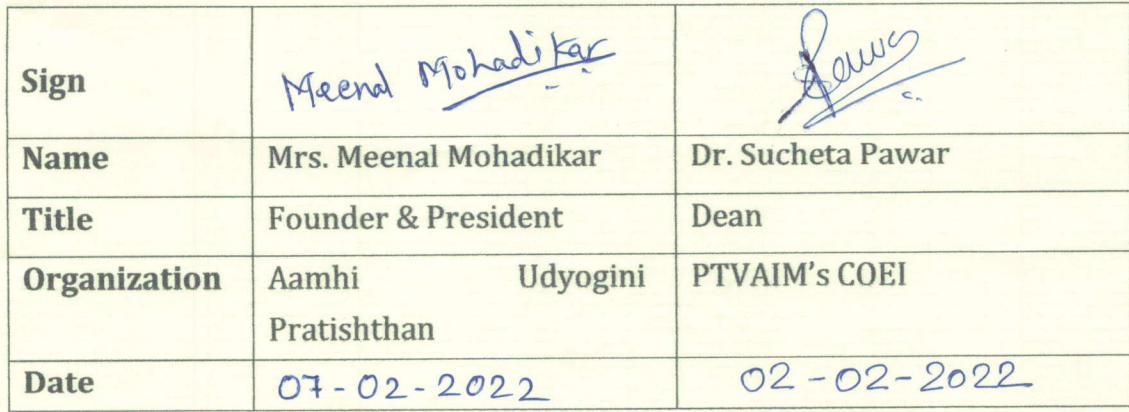 Sign Meenal Mohadikar Pawar
Name Mrs. Meenal Mohadikar Dr. Sucheta Pawar
Title Founder & President Dean
Organization Aamhi Udyogini PTVAIM's COEI
Pratishthan
Date 07-02-2022 02-02-2022